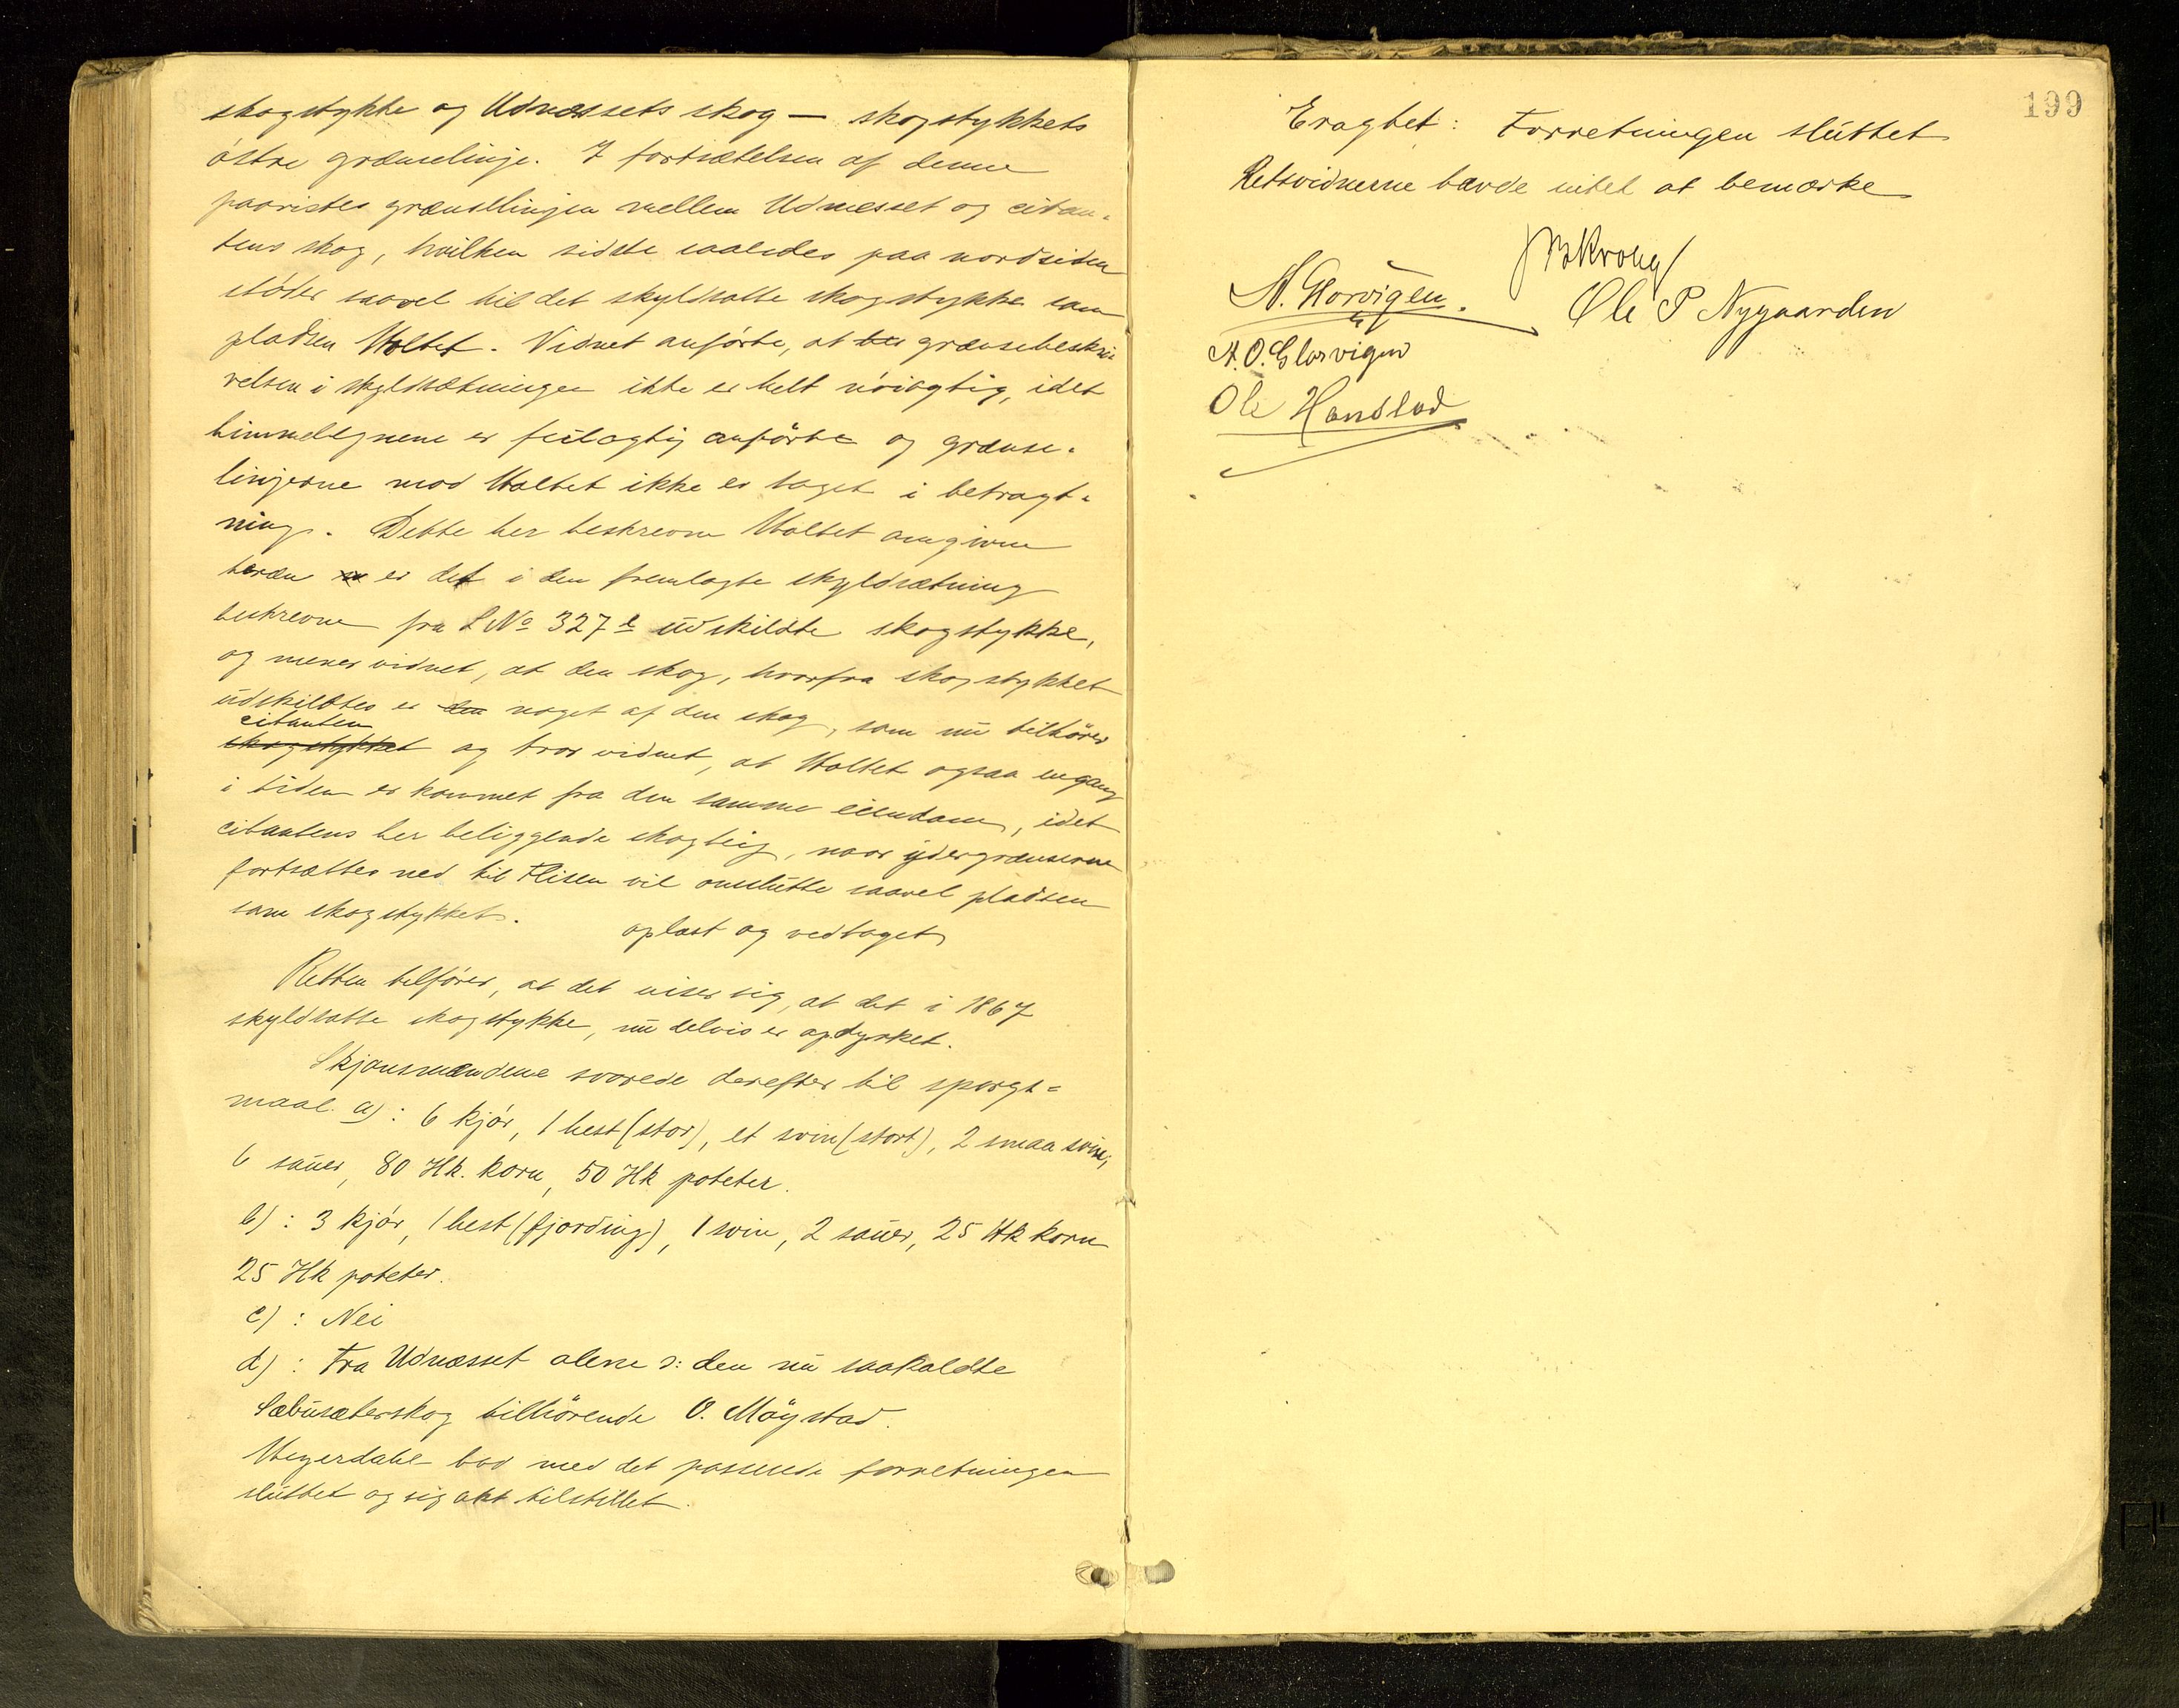 skogstykke og Udnæssets skog — skogstykkets
östre grænselinje. I fortsættelsen af denne
paavistes grænselinjen mellem Udnæsset og citan-
tens skog, hvilken sidste saaledes paa nordsiden
stöder saavel til det skyldsatte skogstykke som
pladsen Holtet. Vidnet anförte, at grænsebeskri
velsen i skyldsætningen ikke er helt nöiagtig, idet
himmelegnene er feilagtig anförte og grænse-
linjerne mod Holtet ikke er taget i betragt-
ning. Dette her beskrevne Holtet omgivne
teræn er det i den fremlagte skyldsætning
beskrevne fra LNo 327 e udskildte skogstykke,
og mener vidnet, at den skog, hvorfra skogstykket
udskiltes er den noget af den skog, som nu tilhörer
citanten
skogstykket og tror vidnet, at Holtet ogsaa engang
i tiden er kommet fra den samme eiendom, idet
citantens her beliggende skogteig, naar ydergrænserne
fortsættes ned til Flisen vil omslutte saavel pladsen
som skogstykket.
oplæst og vedtaget
Retten tilförer, at det viser sig, at det i 1867
skyldsatte skogstykke, nu delvis er opdyrket.
Skjönsmændene svarede derefter til spörgs-
maal a): 6 kjör, 1 hest (stor), et svin (stort), 2 smaa svin,
6 sauer, 80 Hk. korn, 50 Hk poteter.
b): 3 kjör, 1 hest (fjording), 1 svin, 2 sauer, 25 Hk korn
25 Hk poteter.
c): Nei
d): Fra Udnæsset alene ɔ: den nu saakaldte
Sæbusæterskog tilhörende O. Möystad.
Wegerdahl bad med det passerede forretningen
sluttet og sig akt tilstillet.
199
Eragtet: Forretningen sluttet
Retsvidnerne havde intet at bemærke
JB Krohg
N. Glorvigen.
Ole P Nygaarden
A. O. Glorvigen
Ole Handstad